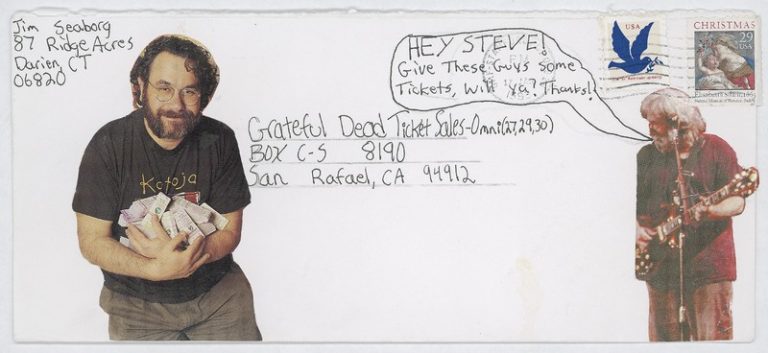 Jim Seaborg
87 Ridge Acres
Darien, CT
06820
HEY STEVE!
Give These Guys Some
Tickets, will ya? Thanks!
USA
CHRISTMAS
29
USA
Grateful Dead Ticket Sales-Omni(27,29,30)
BOX C-S 8190
San Rafael, CA 94912
Kotoja